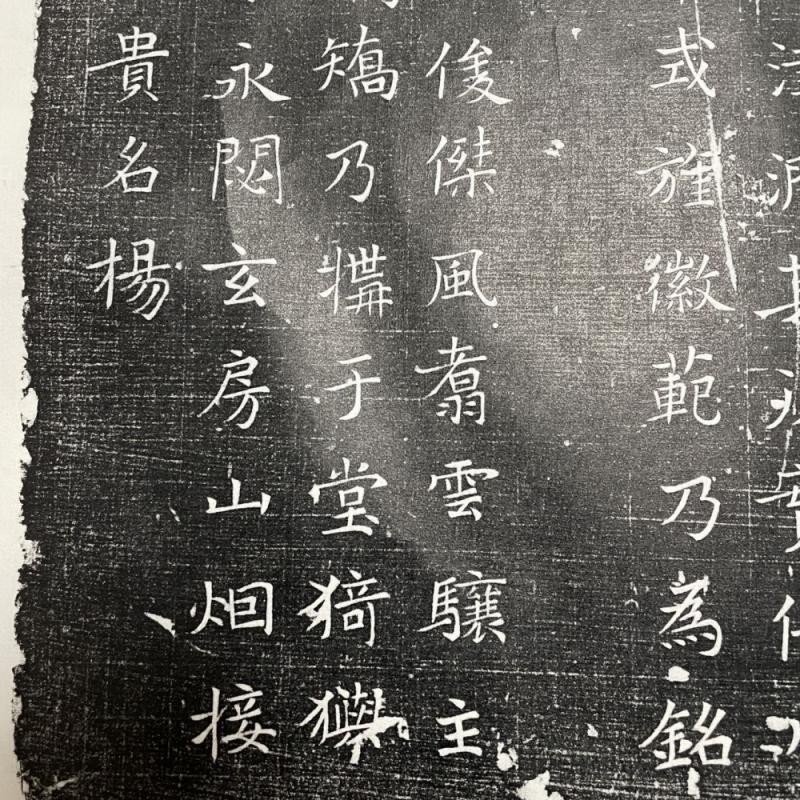 式旌徽範乃為銘
俊傑風翥雲驤主
矯乃構于堂猗歟
永閟玄房山烟接
貴名楊